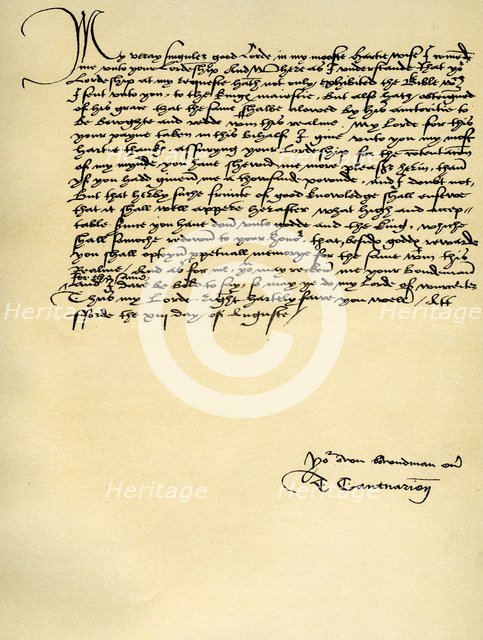 My veray singuler good Lorde, in my mooste hartie wise I comende
me unto your Lordeship. And Where as I understande that yor
Lordeship at my requeste hath not only exhibited the Bible wch
I sent unto you, to the Kings maiestie, But also hath obteigned
of his grace that the same shalbe alowed by his auctoritie to
be bowghte and redde within this realme, My Lorde for this
your payne taken in this behalf, I give unto you my most
hartie thanks, assuryng your Lordeship for the contentacion
of my mynde, you have shewed me more pleasr herin, than
If you hadd given me a thousande pownde, and I doubt not,
But that herby suche fruicte of good knowledge shall ensewe
that it shall well appere hereafter What high and accep-
table servce you have don unto godde and the King, which
shall somoche redown to your honor that, beside godds rewarde
you shall opteyn perpetuall memorye for the same within this
Realme, And as for me, you may reken me your Bondeman
for the same
And I dare be bold to say so may ye do my Lorde of wurcester
Thus my Lorde, Right hartely fare you well, Att
fforde the xiij day of Auguste
Yor own bowndman ever
T. Cantuarien
Heritage
Heritage
Heritage
Heritage
Heritage
Heritage
Heritage
©